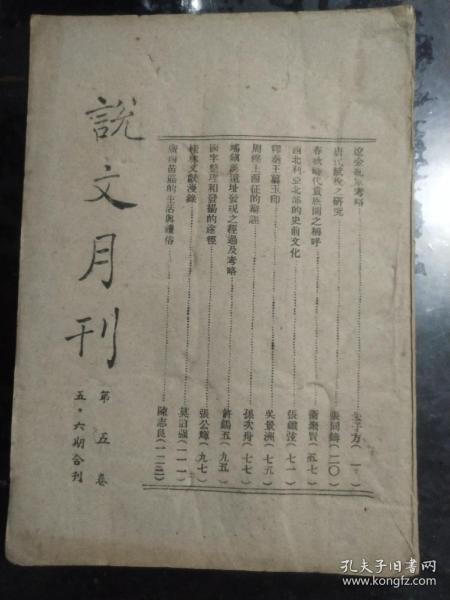 遼金氈廬考略……朱子方(一)
唐代賦役之研究……張同鑄(二〇)
春秋時代貴族間之稱呼……衞聚賢(五七)
西北利亞北部的史前文化……張鐵弦(七一)
印秦王墓玉印……吳景洲(七五)
周穆王西征的辯証……張次舟(七七)
瑤鎮漢遺址發現之經過及考略……許錫五(九五)
國字整理和發揚的途徑……張公輝(九七)
桂林文獻漫錄……(一一一)
廣西苗區的生活與禮俗……陳志良(一二三)
說文月刊
第五卷
五·六期合刊
孔夫子旧书网
www.kongfz.com